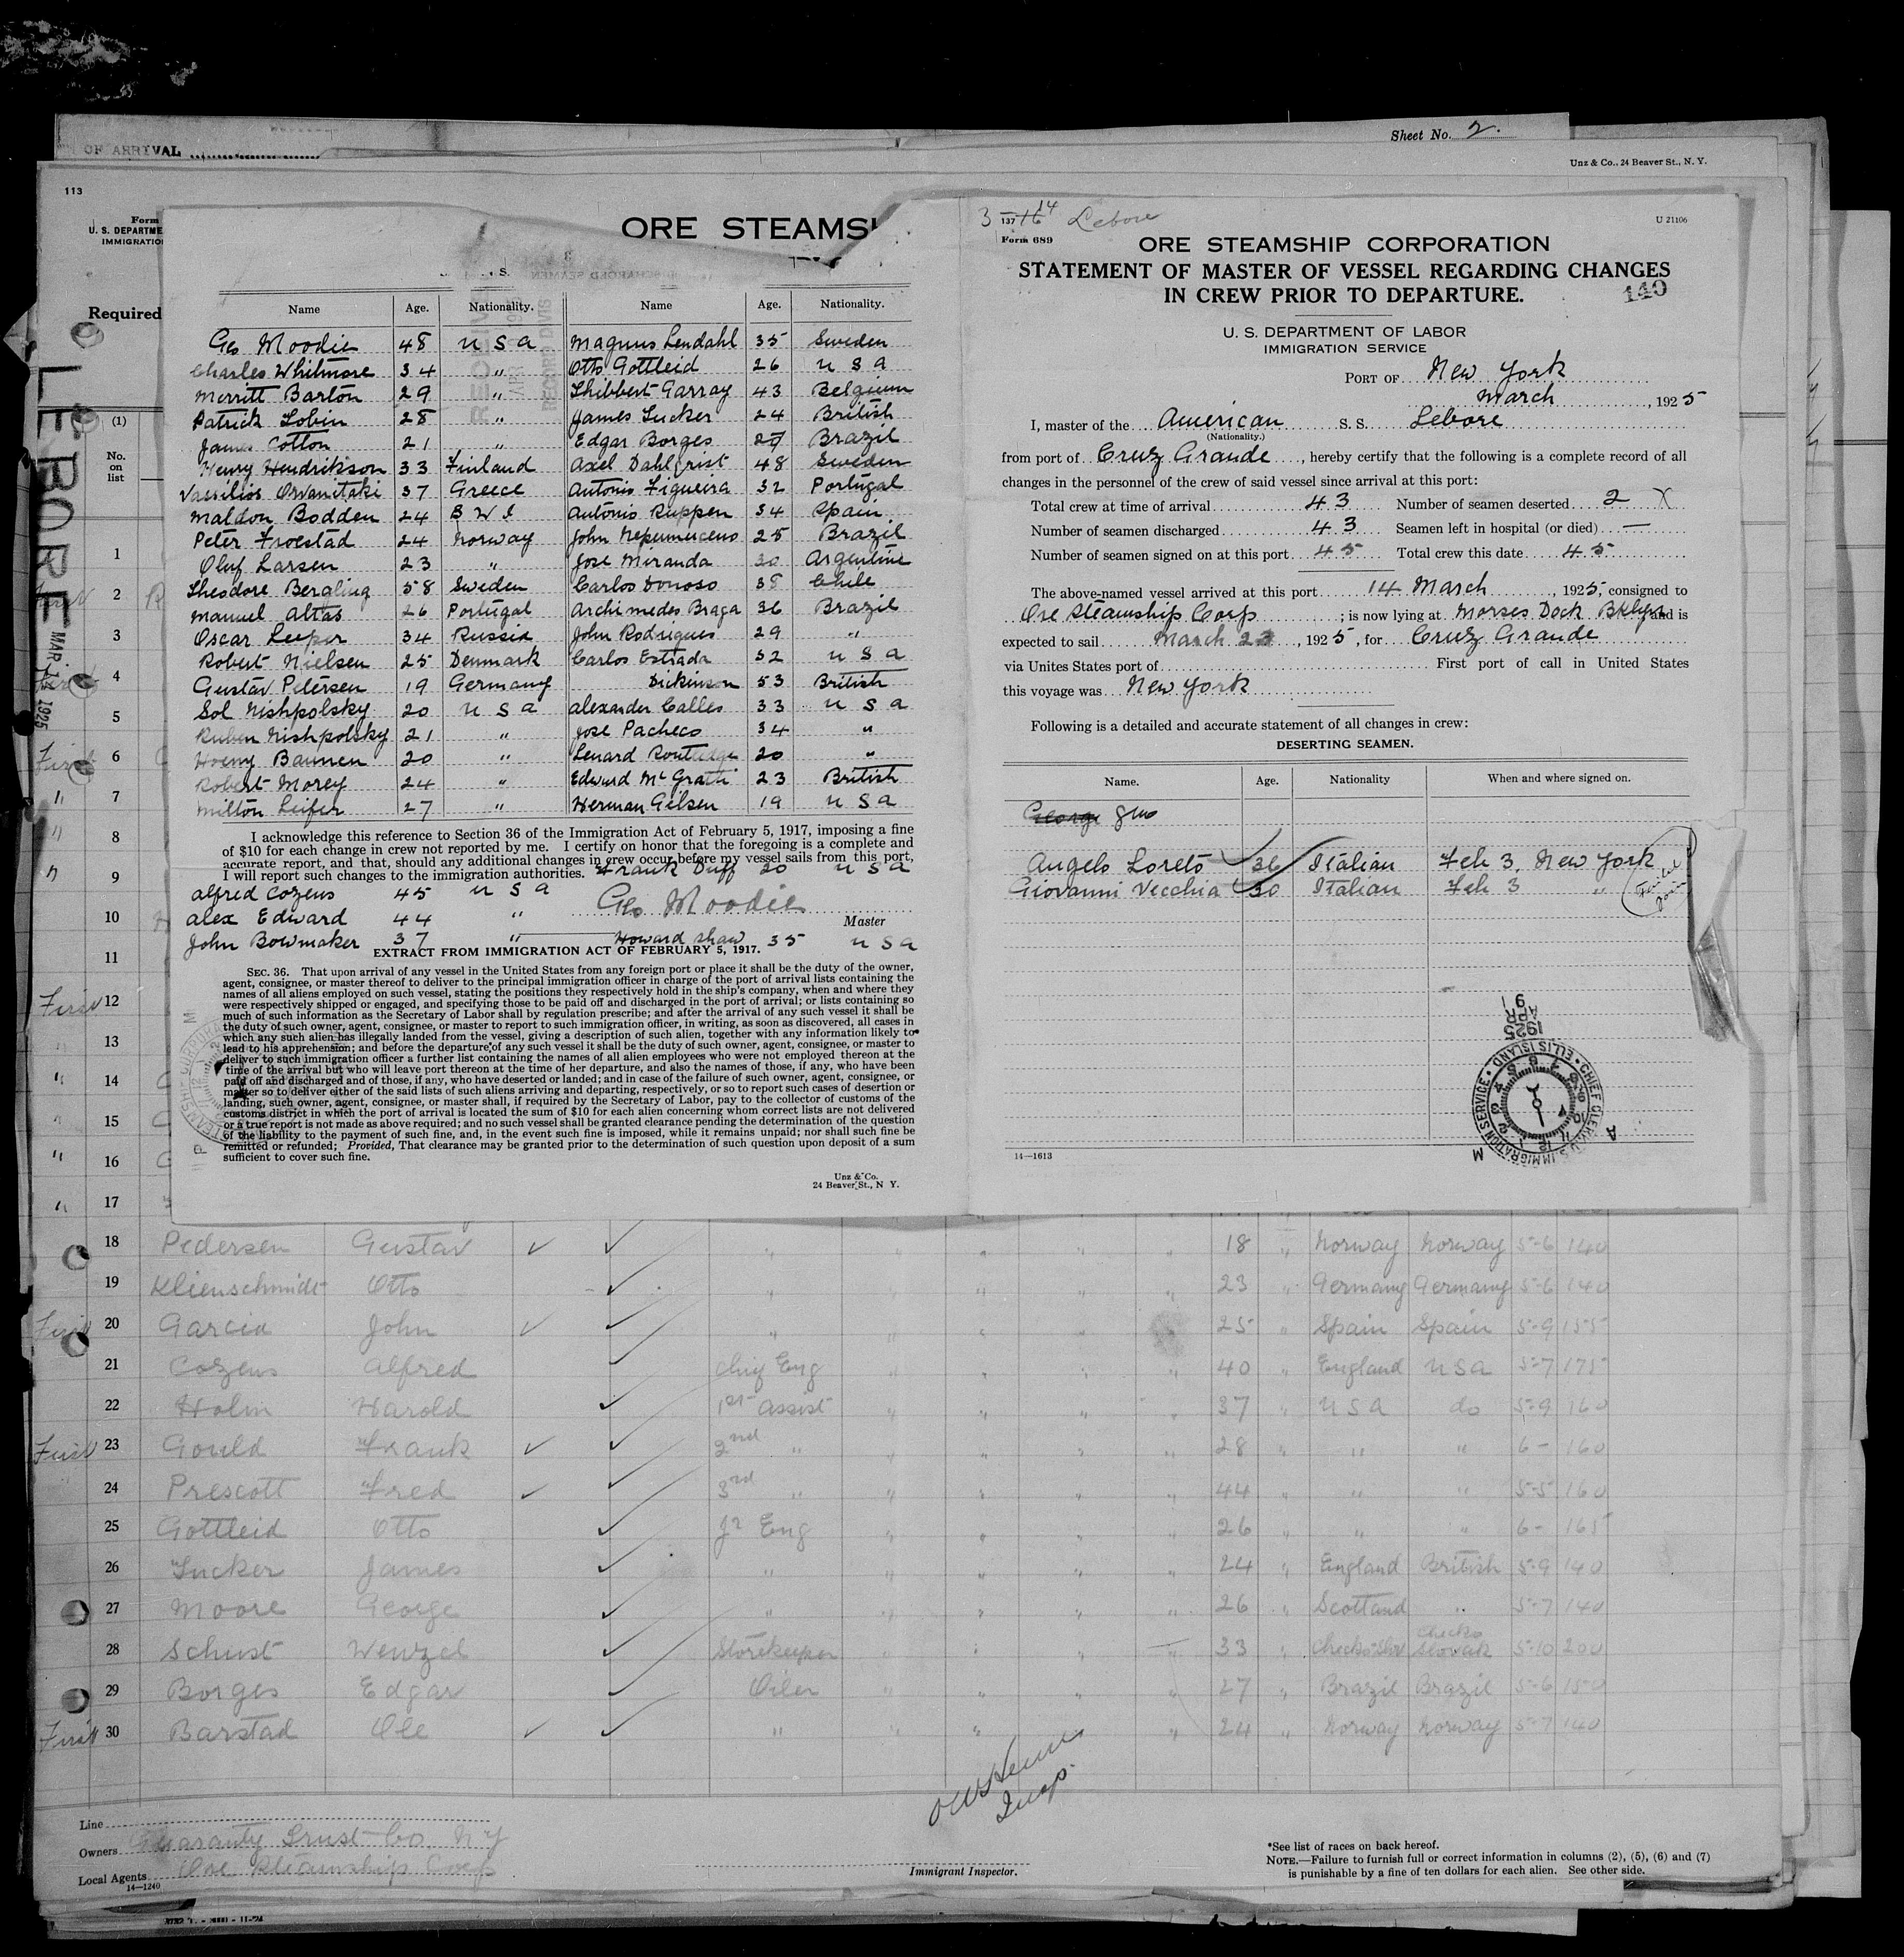 Sheet No. 2.
OF ARRIVAL
Unz & Co., 24 Beaver St., N. Y.
113
Form
U. S. DEPARTME
IMMIGRATIO
Required
LEBORE MAR 14 1925
(1)
No. on list
ORE STEAMS
Name Age. Nationality. Name Age. Nationality.
Geo Moodie 48 U S A Magnus Lendahl 35 Sweden
Charles Whitmore 34 " Otto Gottleid 26 U S A
Merritt Barton 29 " Thibbert Garray 43 Belgium
Patrick Tobin 28 " James Tucker 24 British
James Cotton 21 " Edgar Borges 27 Brazil
Henry Hendrikson 33 Finland Axel Dahlqrist 48 Sweden
Vassilios Orvanitaki 37 Greece Antonio Figueira 32 Portugal
Maldon Bodden 24 B W I Antonio Ruppen 34 Spain
Peter Froestad 24 Norway John Nepumuceno 25 Brazil
Oluf Larsen 23 " Jose Miranda 30 Argentine
Theodore Bergling 58 Sweden Carlos Donoso 38 Chile
Manuel Altas 26 Portugal Archimedes Braga 36 Brazil
Oscar Leeper 34 Russia John Rodrigues 29 "
Robert Nielsen 25 Denmark Carlos Estrada 32 U S A
Gustav Petersen 19 Germany Dickinson 53 British
Sol Nishpolsky 20 U S A Alexander Calles 33 U S A
Ruben Nishpolsky 21 " Jose Pacheco 34 "
Hoemy Baumen 20 " Lenard Routledge 20 "
Robert Morey 24 " Edward McGrath 23 British
Milton Leifer 27 " Herman Gilsen 19 U S A
I acknowledge this reference to Section 36 of the Immigration Act of February 5, 1917, imposing a fine
of $10 for each change in crew not reported by me. I certify on honor that the foregoing is a complete and
accurate report, and that, should any additional changes in crew occur before my vessel sails from this port,
I will report such changes to the immigration authorities. Frank Duff 20 U S A
Alfred Cozens 45 U S A
Alex Edward 44 " Geo Moodie
Master
John Bowmaker 37 " Howard Shaw 35 U S A
EXTRACT FROM IMMIGRATION ACT OF FEBRUARY 5, 1917.
SEC. 36. That upon arrival of any vessel in the United States from any foreign port or place it shall be the duty of the owner,
agent, consignee, or master thereof to deliver to the principal immigration officer in charge of the port of arrival lists containing the
names of all aliens employed on such vessel, stating the positions they respectively hold in the ship's company, when and where they
were respectively shipped or engaged, and specifying those to be paid off and discharged in the port of arrival; or lists containing so
much of such information as the Secretary of Labor shall by regulation prescribe; and after the arrival of any such vessel it shall be
the duty of such owner, agent, consignee, or master to report to such immigration officer, in writing, as soon as discovered, all cases in
which any such alien has illegally landed from the vessel, giving a description of such alien, together with any information likely to
lead to his apprehension; and before the departure of any such vessel it shall be the duty of such owner, agent, consignee, or master to
deliver to such immigration officer a further list containing the names of all alien employees who were not employed thereon at the
time of the arrival but who will leave port thereon at the time of her departure, and also the names of those, if any, who have been
paid off and discharged and of those, if any, who have deserted or landed; and in case of the failure of such owner, agent, consignee, or
master so to deliver either of the said lists of such aliens arriving and departing, respectively, or so to report such cases of desertion or
landing, such owner, agent, consignee, or master shall, if required by the Secretary of Labor, pay to the collector of customs of the
customs district in which the port of arrival is located the sum of $10 for each alien concerning whom correct lists are not delivered
or a true report is not made as above required; and no such vessel shall be granted clearance pending the determination of the question
of the liability to the payment of such fine, and, in the event such fine is imposed, while it remains unpaid; nor shall such fine be
remitted or refunded; Provided, That clearance may be granted prior to the determination of such question upon deposit of a sum
sufficient to cover such fine.
Unz & Co.
24 Beaver St., N Y.
3 - 14 Lebore
137
U 21106
Form 689
ORE STEAMSHIP CORPORATION
STATEMENT OF MASTER OF VESSEL REGARDING CHANGES
IN CREW PRIOR TO DEPARTURE.
140
U. S. DEPARTMENT OF LABOR
IMMIGRATION SERVICE
PORT OF New York
March, 1925
I, master of the American S. S. Lebore
(Nationality.)
from port of Cruz Grande, hereby certify that the following is a complete record of all
changes in the personnel of the crew of said vessel since arrival at this port:
Total crew at time of arrival 43 Number of seamen deserted 2 X
Number of seamen discharged 43 Seamen left in hospital (or died) —
Number of seamen signed on at this port 45 Total crew this date 45
The above-named vessel arrived at this port 14 March, 1925, consigned to
Ore Steamship Corp; is now lying at Morses Dock Bklyn and is
expected to sail March 23, 1925, for Cruz Grande
via Unites States port of First port of call in United States
this voyage was New York
Following is a detailed and accurate statement of all changes in crew:
DESERTING SEAMEN.
Name. Age. Nationality When and where signed on.
George
Angelo Loreto 36 Italian Feb 3, New York
Giovanni Vecchia 30 Italian Feb 3 "
1925 APR 9
CHIEF CLERK U.S. IMMIGRATION SERVICE · ELLIS ISLAND
14—1613
1
2
3
4
5
First 6
" 7
" 8
" 9
10
11
First 12
" 13
" 14
" 15
" 16
" 17
18 Pedersen Gustav " " " " 18 " Norway Norway 5-6 140
19 Klienschmidt Otto " " " " 23 " Germany Germany 5-6 140
First 20 Garcia John " " " " 25 " Spain Spain 5-9 155
21 Cozens Alfred Chief Eng " " " " 40 " England U S A 5-7 175
22 Holm Harold 1st Assist " " " " 37 " U S A do 5-9 160
First 23 Gould Frank 2nd " " " " " 28 " " " 6- 160
24 Prescott Fred 3rd " " " " " 44 " " " 5-5 160
25 Gottleid Otto Jr Eng " " " " 26 " " " 6- 165
26 Tucker James " " " " " 24 " England British 5-9 140
27 Moore George " " " " " 26 " Scotland " 5-7 140
28 Schust Wenzel Storekeeper " " " " 33 " Checko-Slov Checko Slovak 5-10 200
29 Borges Edgar Oiler " " " " 27 " Brazil Brazil 5-6 150
First 30 Barstad Ole " " " " 24 " Norway Norway 5-7 140
Insp.
Line
Owners Guaranty Trust Co. N Y
Local Agents Ore Steamship Corp
14—1240
Immigrant Inspector.
*See list of races on back hereof.
NOTE.—Failure to furnish full or correct information in columns (2), (5), (6) and (7)
is punishable by a fine of ten dollars for each alien. See other side.